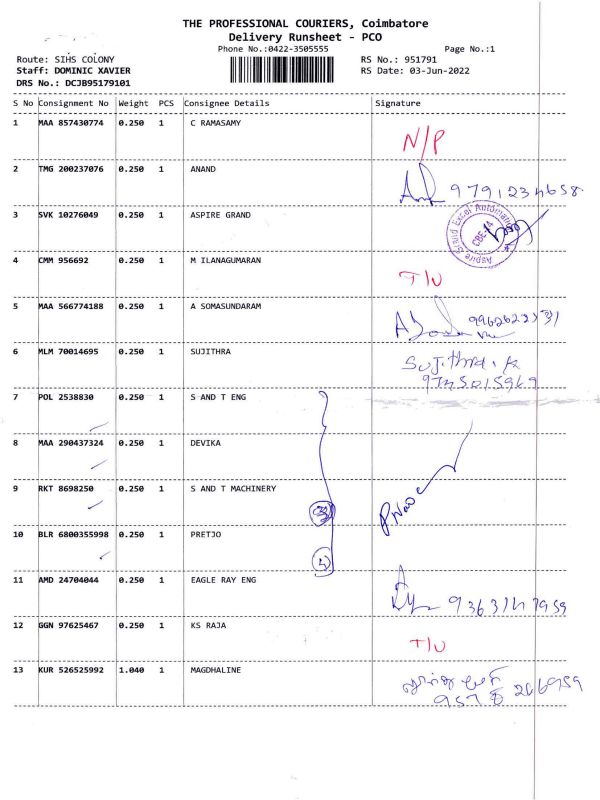 THE PROFESSIONAL COURIERS, Coimbatore
Delivery Runsheet - PCO
Phone No.:0422-3505555
Page No.:1
Route: SIHS COLONY
RS No.: 951791
Staff: DOMINIC XAVIER
RS Date: 03-Jun-2022
DRS No.: DCJB95179101
S No Consignment No Weight PCS Consignee Details Signature
1 MAA 857430774 0.250 1 C RAMASAMY
N/P
2 TMG 200237076 0.250 1 ANAND
9791234658
3 SVK 10276049 0.250 1 ASPIRE GRAND
4 CMM 956692 0.250 1 M ILANAGUMARAN
T/U
5 MAA 566774188 0.250 1 A SOMASUNDARAM
6 MLM 70014695 0.250 1 SUJITHRA
Sujithra. K
7 POL 2538830 0.250 1 S AND T ENG
8 MAA 290437324 0.250 1 DEVIKA
9 RKT 8698250 0.250 1 S AND T MACHINERY
3
10 BLR 6800355998 0.250 1 PRETJO
4
11 AMD 24704044 0.250 1 EAGLE RAY ENG
12 GGN 97625467 0.250 1 KS RAJA
T/U
13 KUR 526525992 1.040 1 MAGDHALINE